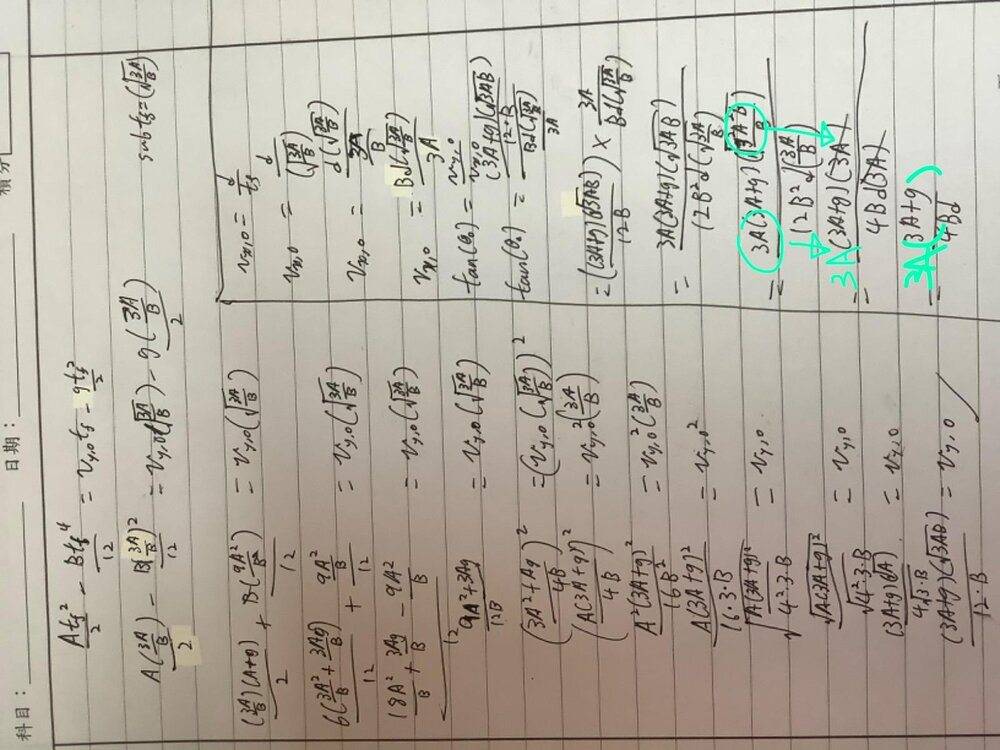 科目：
日期：
積分
\frac{At_s^2}{2} - \frac{Bt_s^4}{12} = v_{y,0} t_s - \frac{gt_s^2}{2}
\frac{A(\frac{3A}{B})}{2} - \frac{B(\frac{3A}{B})^2}{12} = v_{y,0}(\sqrt{\frac{3A}{B}}) - \frac{g(\frac{3A}{B})}{2} sub t_s = (\sqrt{\frac{3A}{B}})
\frac{(\frac{3A}{B})(A+g)}{2} + \frac{B(\frac{9A^2}{B^2})}{12} = v_{y,0}(\sqrt{\frac{3A}{B}})
\frac{6(\frac{3A^2}{B} + \frac{3Ag}{B})}{12} + \frac{\frac{9A^2}{B}}{12} = v_{y,0}(\sqrt{\frac{3A}{B}})
\frac{\frac{18A^2}{B} + \frac{3Ag}{B} - \frac{9A^2}{B}}{12} = v_{y,0}(\sqrt{\frac{3A}{B}})
\frac{9A^2+3Ag}{12B} = v_{y,0}(\sqrt{\frac{3A}{B}})
(\frac{3A^2+Ag}{4B})^2 = (v_{y,0}(\sqrt{\frac{3A}{B}}))^2
(\frac{A(3A+g)}{4B})^2 = v_{y,0}^2(\frac{3A}{B})
\frac{A^2(3A+g)^2}{16B^2} = v_{y,0}^2(\frac{3A}{B})
\frac{A(3A+g)^2}{16·3·B} = v_{y,0}^2
\sqrt{\frac{A(3A+g)^2}{4^2·3·B}} = v_{y,0}
\frac{\sqrt{A(3A+g)^2}}{\sqrt{4^2·3·B}} = v_{y,0}
\frac{(3A+g)(\sqrt{A})}{4\sqrt{3·B}} = v_{y,0}
\frac{(3A+g)(\sqrt{3AB})}{12·B} = v_{y,0}
v_{x,0} = \frac{d}{t_s}
v_{x,0} = \frac{d}{(\sqrt{\frac{3A}{B}})}
v_{x,0} = \frac{d(\sqrt{\frac{3A}{B}})}{\frac{3A}{B}}
v_{x,0} = \frac{Bd(\sqrt{\frac{3A}{B}})}{3A}
tan(θ_0) = \frac{v_{y,0}}{v_{x,0}}
tan(θ_0) = \frac{\frac{(3A+g)(\sqrt{3AB})}{12·B}}{\frac{Bd(\sqrt{\frac{3A}{B}})}{3A}}
= \frac{(3A+g)(\sqrt{3AB})}{12B} × \frac{3A}{Bd(\sqrt{\frac{3A}{B}})}
= \frac{3A(3A+g)(\sqrt{3AB})}{12B^2d(\sqrt{\frac{3A}{B}})}
= \frac{3A(3A+g)(\sqrt{\frac{9A^2B}{B}})}{12B^2d(\sqrt{\frac{3A}{B}})}
= \frac{3A(3A+g)(3A)}{4Bd(3A)}
= \frac{3A(3A+g)}{4Bd}